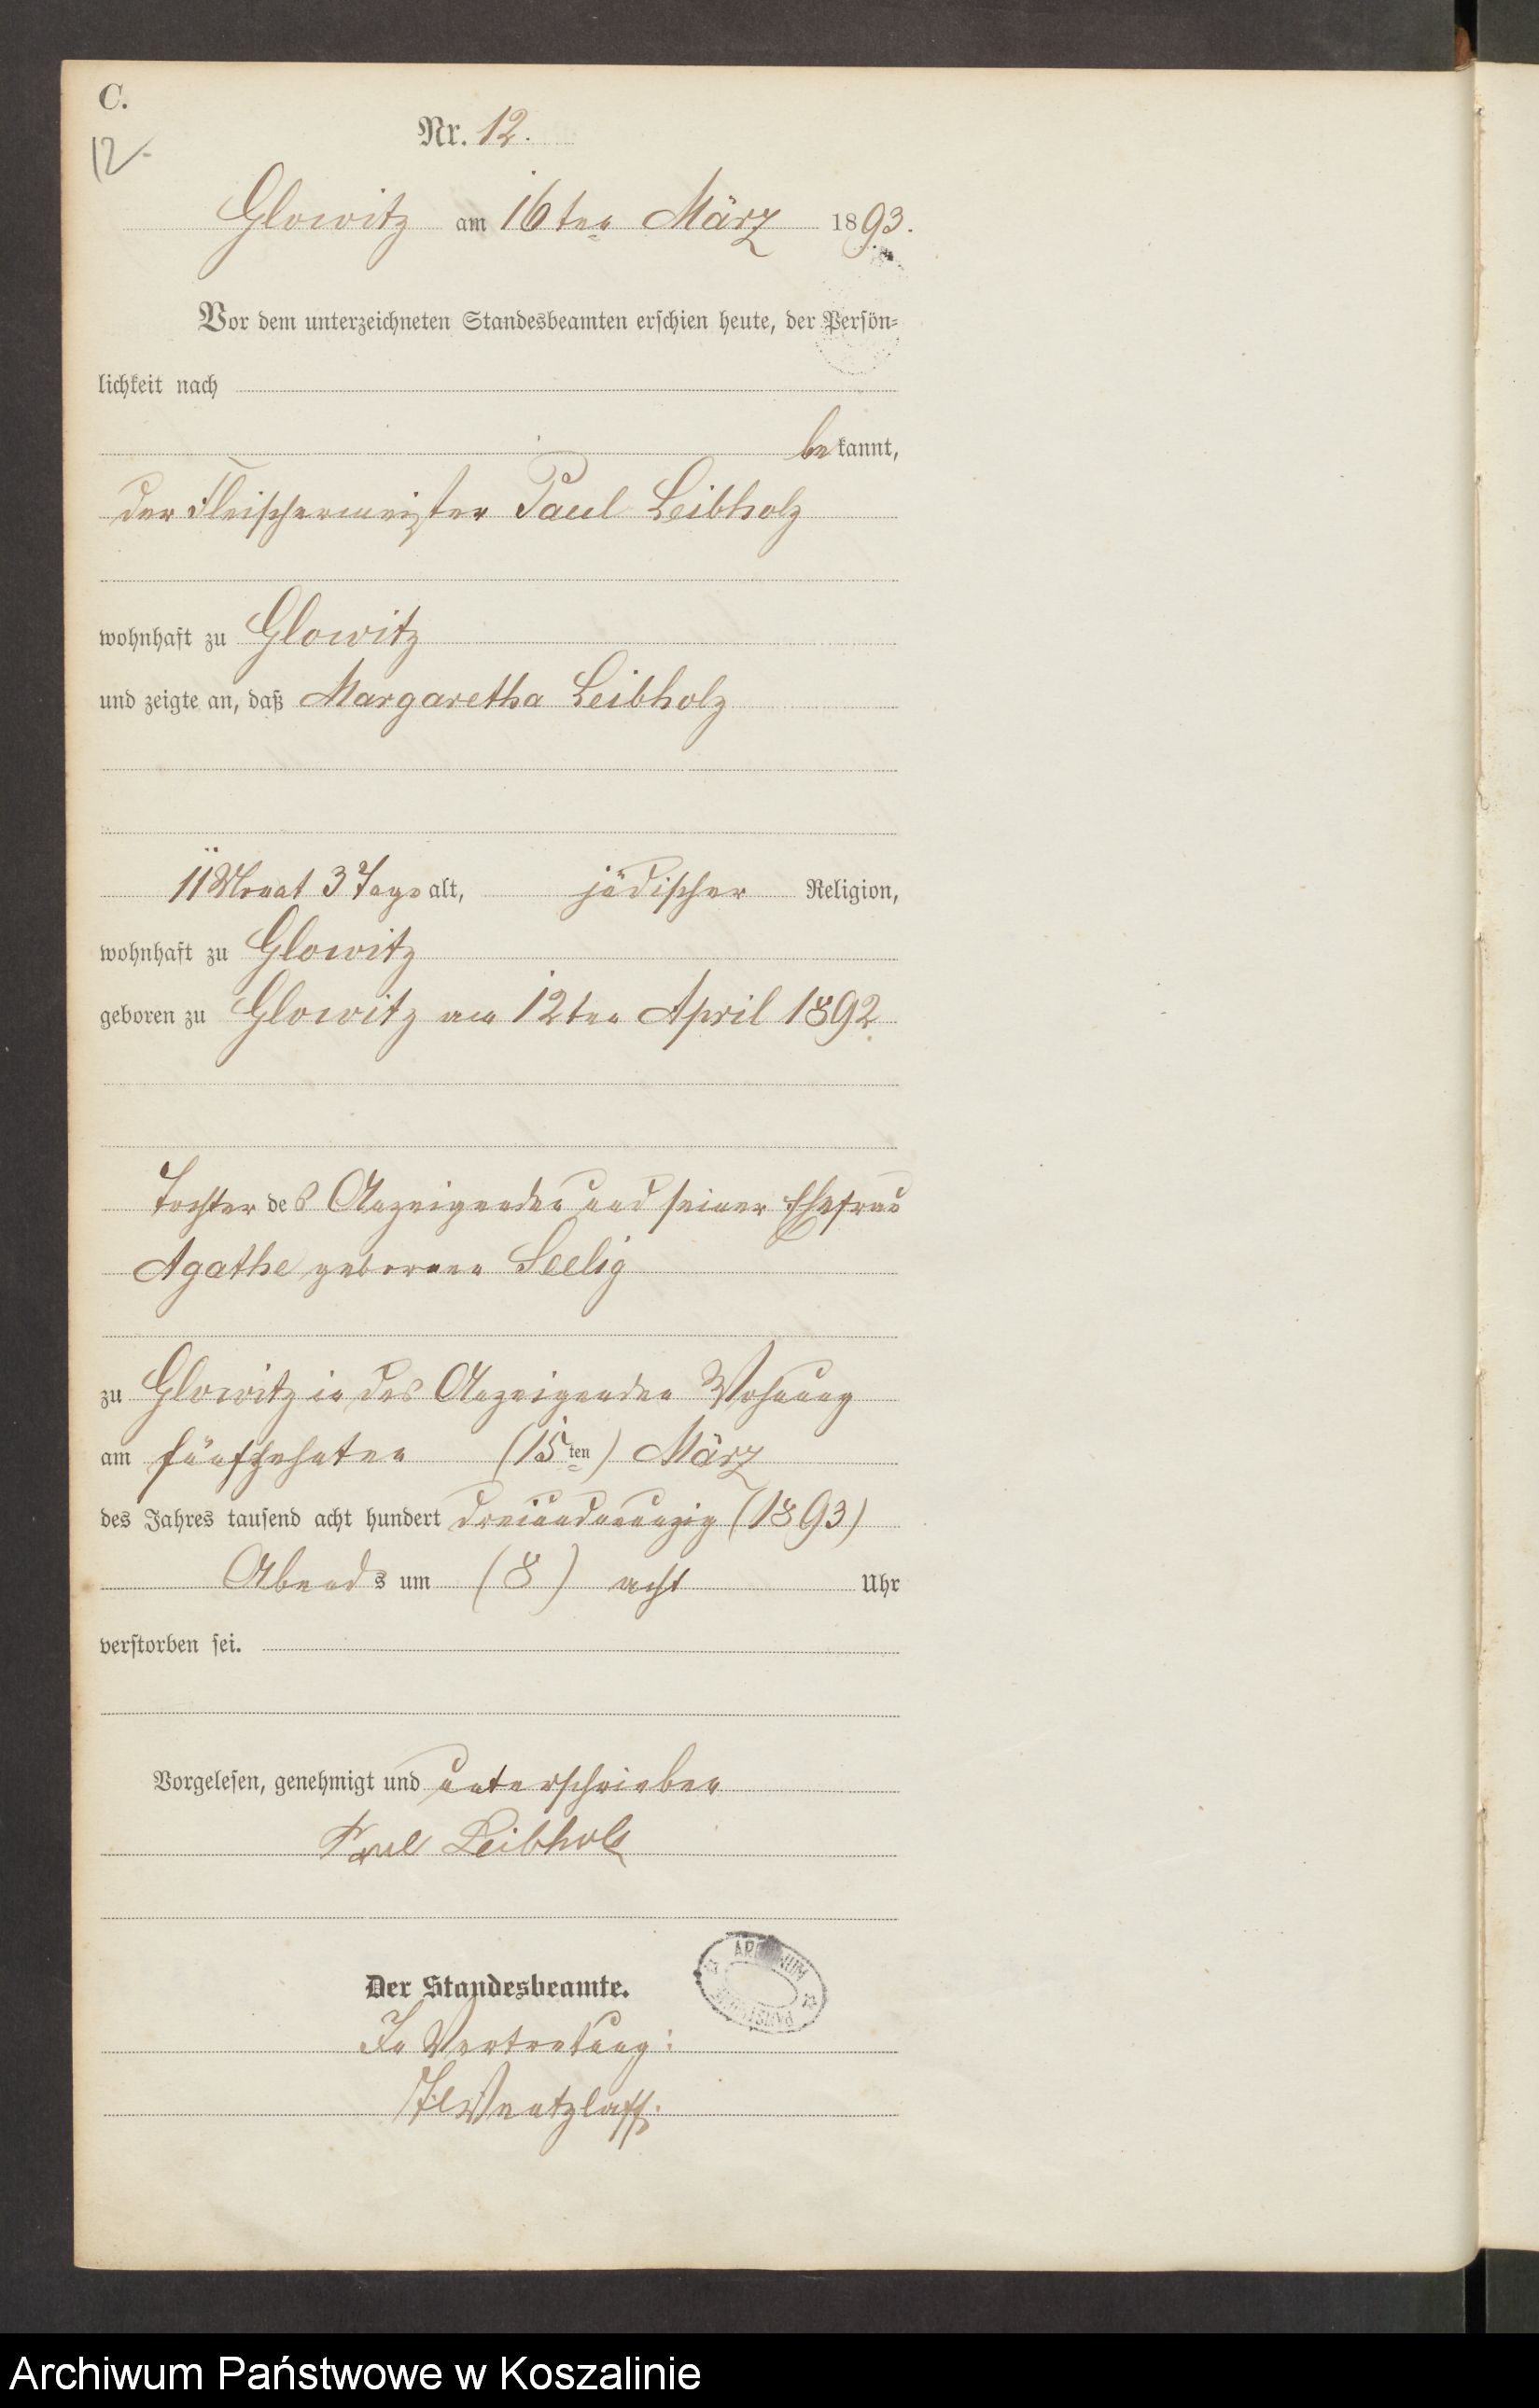 C.
12.
Nr. 12.
Glowitz am 16ten März 1893.
Vor dem unterzeichneten Standesbeamten erschien heute, der Persön-
lichkeit nach
bekannt,
der Fleischermeister Paul Leibholz
wohnhaft zu Glowitz
und zeigte an, daß Margaretha Leibholz
11 Monat 3 Tage alt, jüdischer Religion,
wohnhaft zu Glowitz
geboren zu Glowitz am 12ten April 1892
Tochter des Anzeigenden und seiner Ehefrau
Agathe geborenen Seelig
zu Glowitz in des Anzeigenden Wohnung
am fünfzehnten (15ten) März
des Jahres tausend acht hundert dreiundneunzig (1893)
Abends um (8) acht Uhr
verstorben sei.
Vorgelesen, genehmigt und unterschrieben
Paul Leibholz
Der Standesbeamte.
ARCHIWUM
In Vertretung:
Wentzlaff.
Archiwum Państwowe w Koszalinie